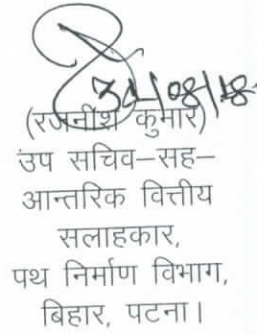 30/08/18
(रजनीश कुमार)
उप सचिव–सह–
आन्तरिक वित्तीय
सलाहकार,
पथ निर्माण विभाग,
बिहार, पटना।